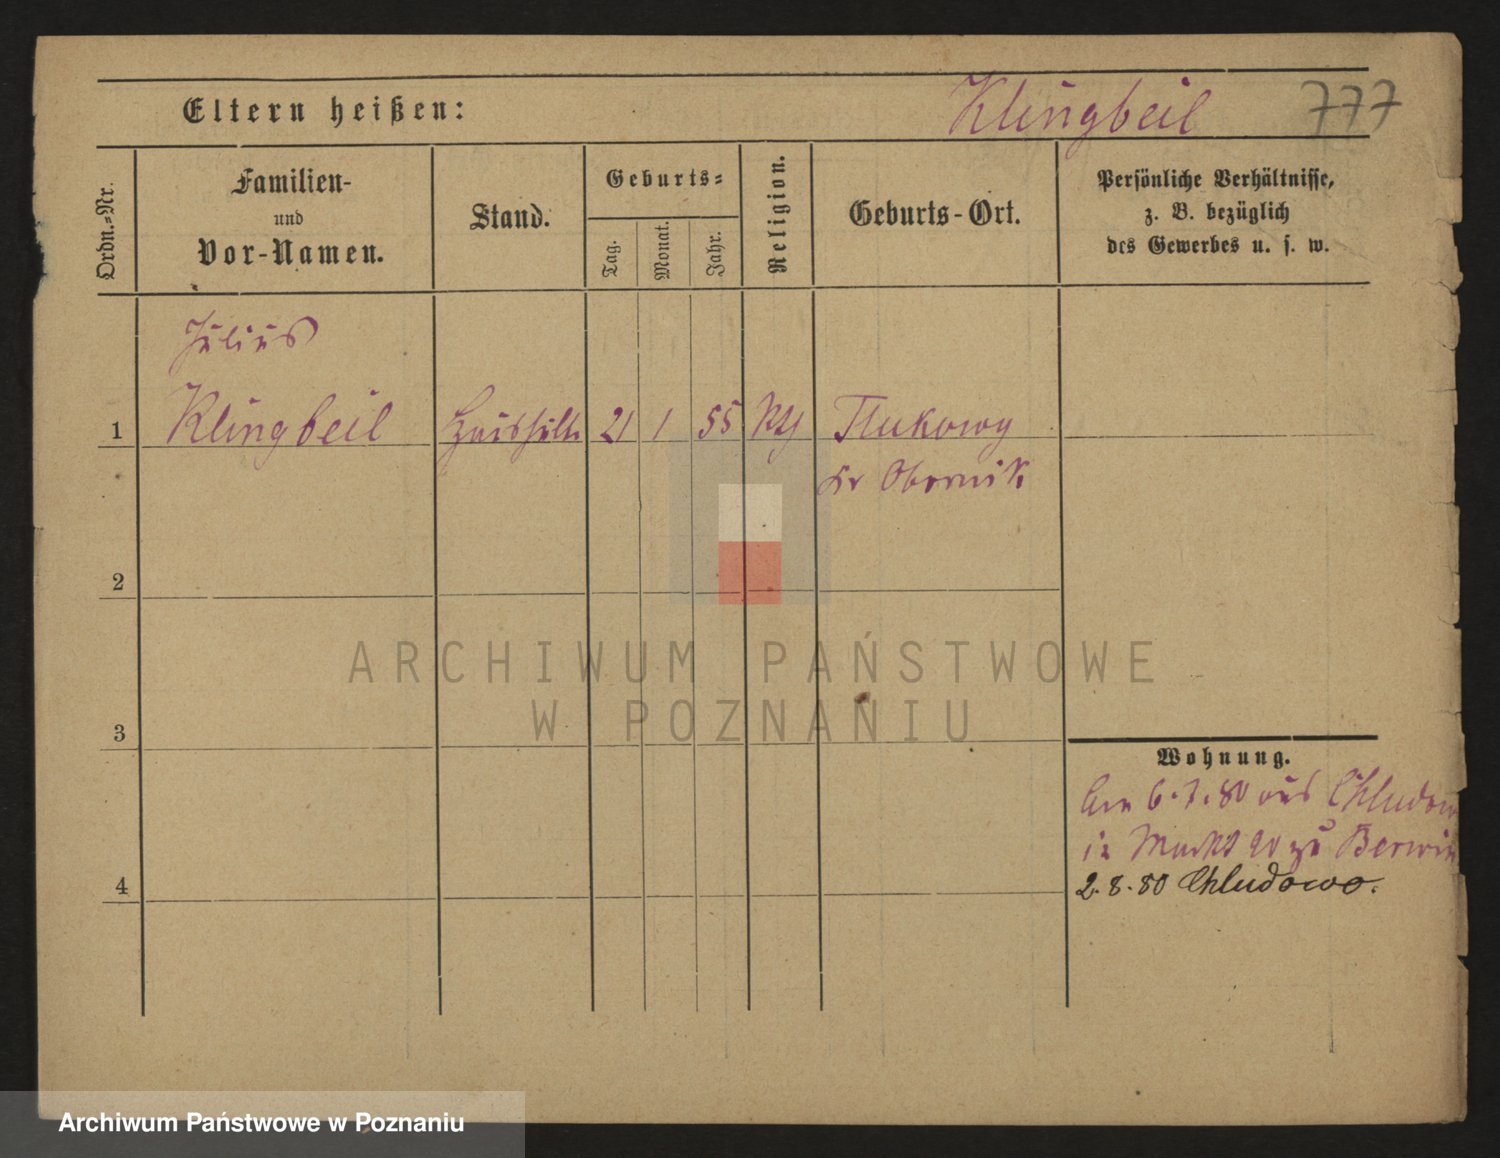 Eltern heißen:
Klingbeil 777
Ordn.-Nr.
Familien-
und
Vor-Namen.
Stand.
Geburts-
Tag.
Monat.
Jahr.
Religion.
Geburts-Ort.
Persönliche Verhältnisse,
z. B. bezüglich
des Gewerbes u. s. w.
Julius
1 Klingbeil 21 1 55 Tlukowy
Kr Obornik
2
3
4
Wohnung.
6.7.80 aus Chludowo
in Markt zu
2.8.80 Chludowo.
ARCHIWUM PAŃSTWOWE
W POZNANIU
Archiwum Państwowe w Poznaniu